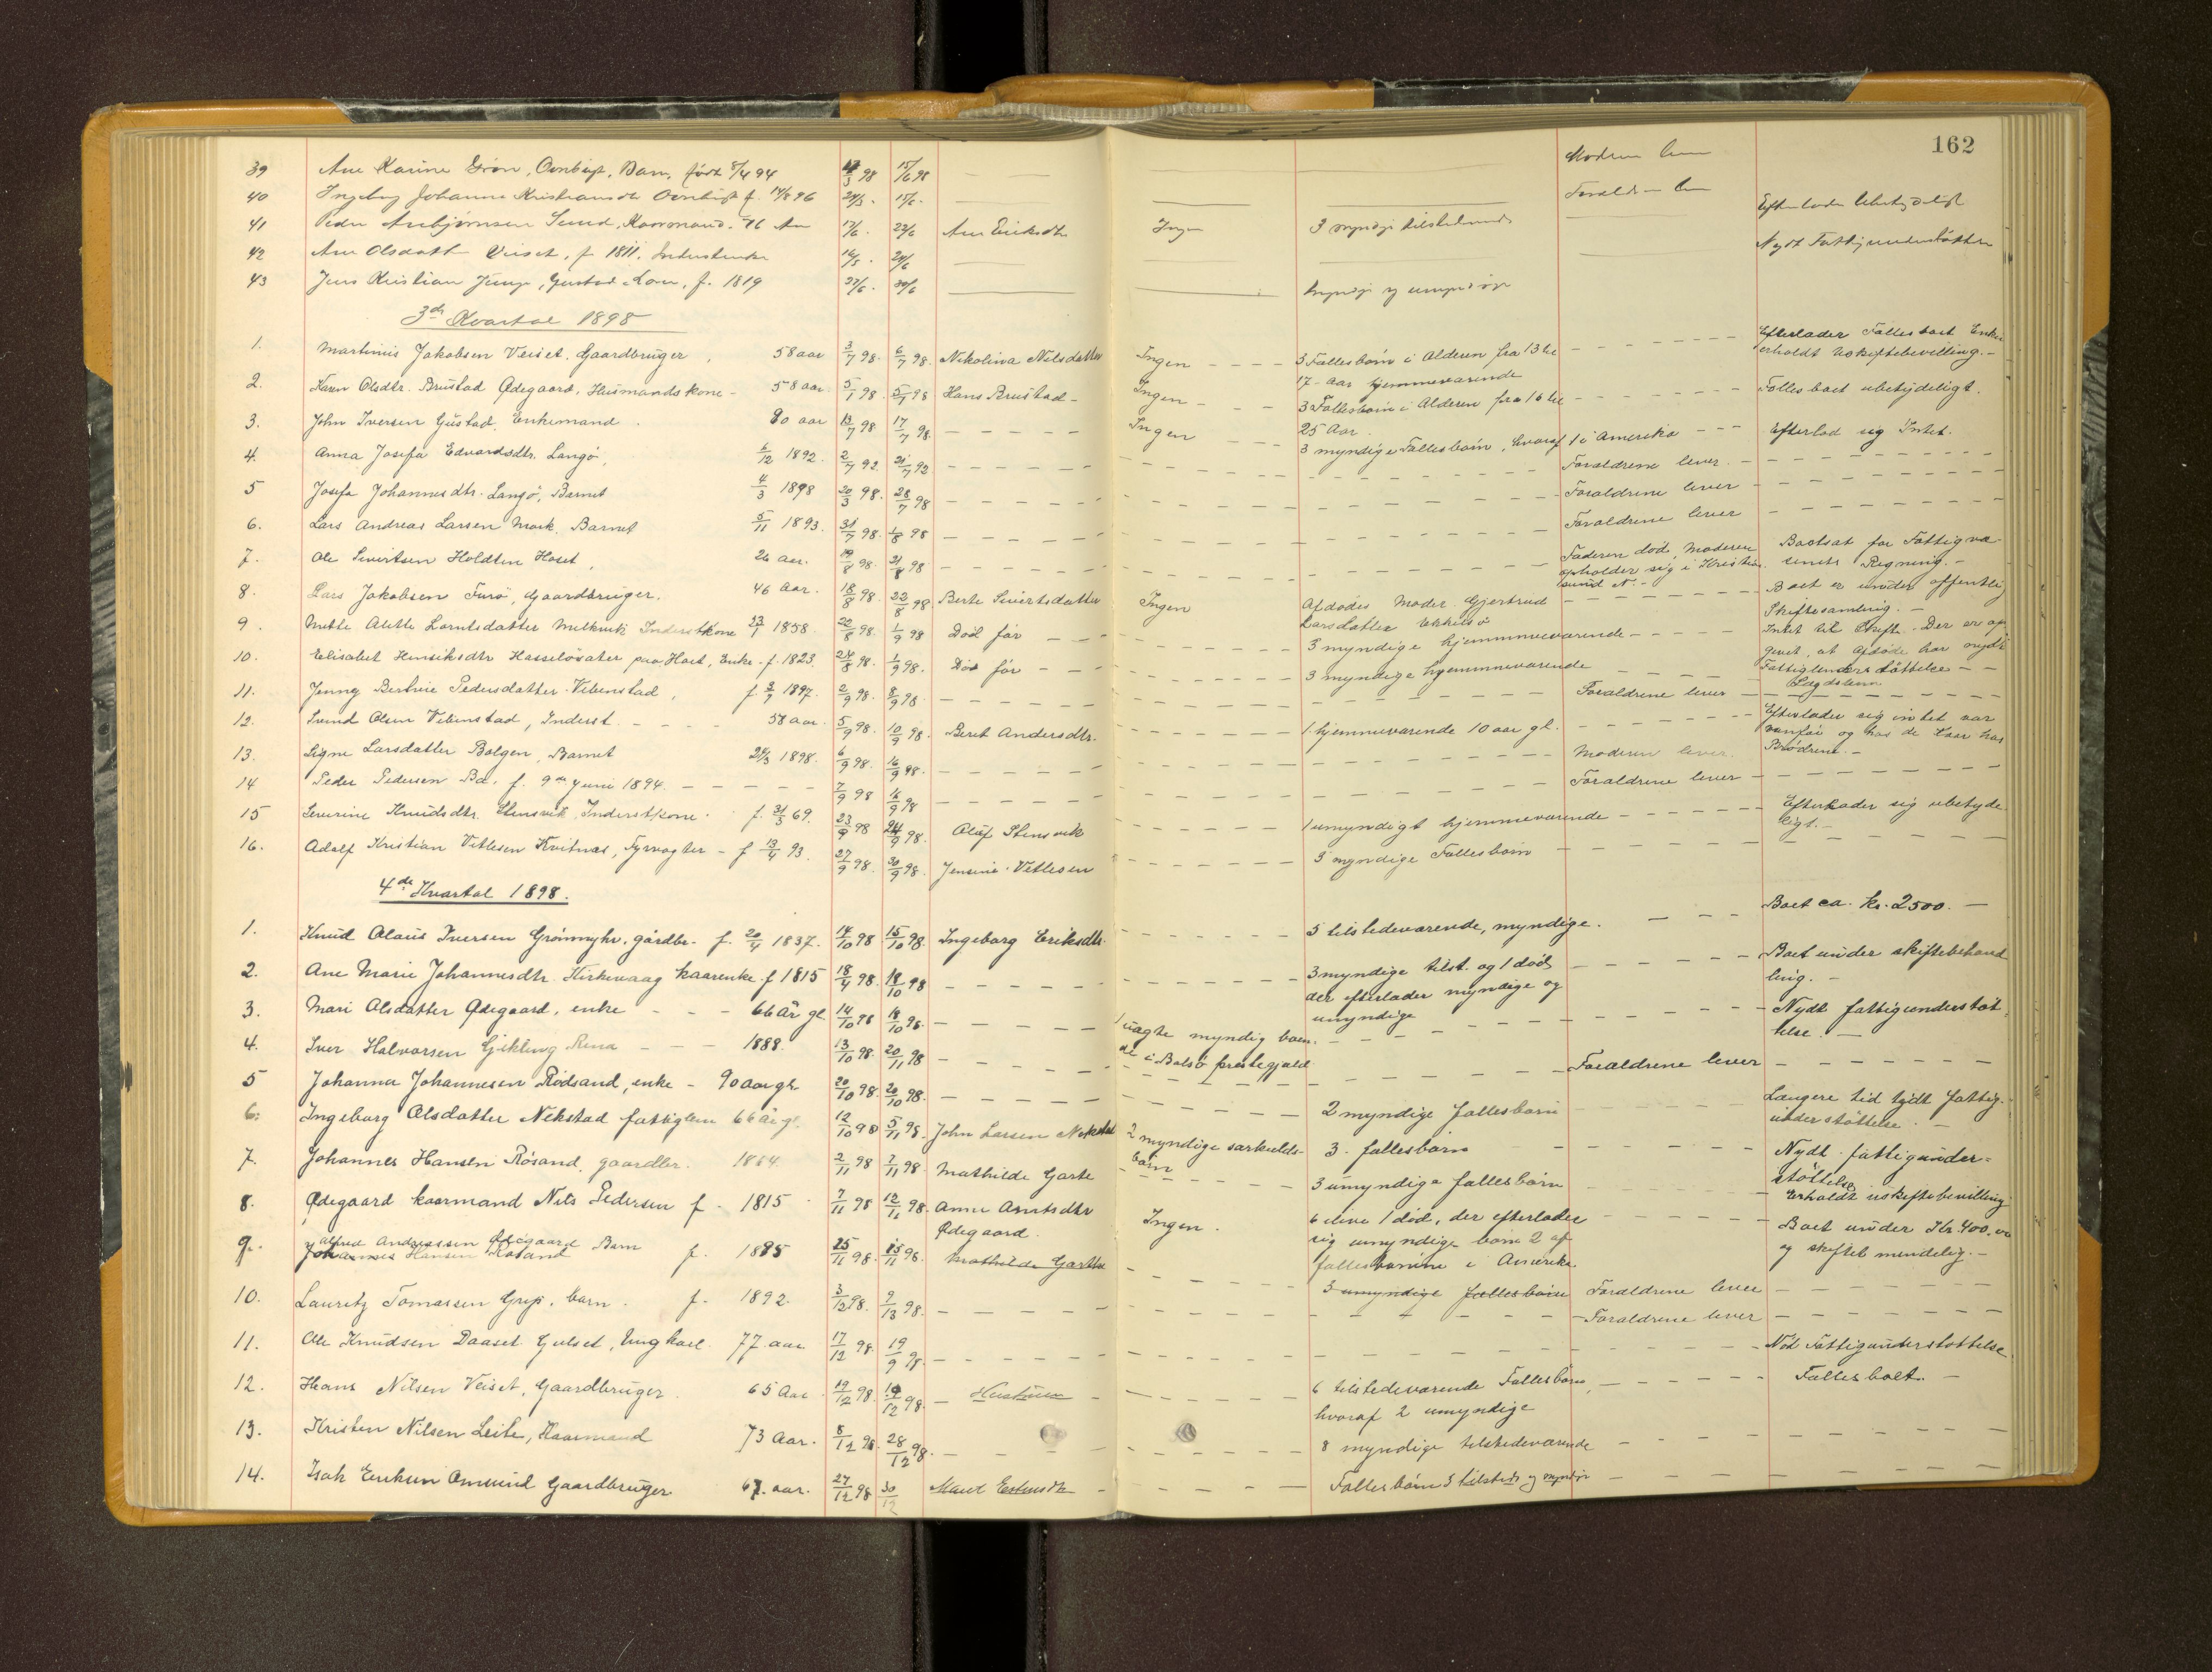 162
39 Ane Karine Grøn, Barn, født 8/4 94 98 15/6 98 — Moderen
40 Ingeborg Johanne f. 14/8 96 24/3 15/6
41 Peder Sund, Kaarmand. 76 Aar 17/6 22/6 Ane Eriksdtr Ingen 3 myndige tilstede Efterlader Ubetydeligt
42 Ane Olsdatter Veiset, f 1811. Inderstenke 24/6 Nydt Fattigunderstøttelse
43 Jens Kristian Gustad f. 1819 27/6 30/6 — —
3die Kvartal 1898
1. Martinus Jakobsen Veiset. Gaardbruger, 58 aar 3/7 98. 6/7 98. Nikolina Nilsdatter Ingen - - - - 5 Fællesbørn i Alderen fra 13 til 17 - Aar hjemmeværende - - - Efterlader Fællesboet Enken erholdt Uskiftebevilling. -
2. Karen Olsdtr. Brustad Ødegaard, Husmandskone - 58 aar. 5/1 98. 5/7 98 Hans Brustad - Ingen - - - 3 Fællesbørn i Alderen fra 16 til 25 Aar - - - Fælles boet ubetydeligt.
3. John Iversen Gustad. Enkemand. 80 aar 13/7 98. 17/7 98. - - - - Ingen - - 3 myndige Fællesbørn, hvoraf 1 i Amerika - - - Efterlod sig Intet.
4. Anna Josefa Edvardsdtr. Langø, 6/12 1892. 2/7 92. 21/7 92 - - - - Forældrene lever. - - - -
5 Josefa Johannesdtr. Langø, Barnet 4/3 1898 20/3 98. 28/7 98 - - - - Forældrene lever - - - -
6. Lars Andreas Larsen Mork. Barnet 5/11 1893. 31/7 98. 1/8 98 - - - - Forældrene lever - - - -
7. Ole Sivertsen Holdten Hoset, 26 aar. 19/8 98. 21/8 98 - - - - Faderen død, Moderen opholder sig i Kristiansund N. - Bortsat for Fattigvæsenets Regning. -
8. Lars Jakobsen Furø, Gaardbruger. 46 Aar. 18/8 98. 22/8 98 Berte Sivertsdatter Ingen Afdødes Moder Gjertrud Larsdatter Ekkilsø - - - Boet er under offentlig Skiftesamling. -
9. Mette Alette Lorntsdatter Melkvik Inderstkone 23/1 1858. 22/8 98. 1/9 98 Død før - - - 3 myndige hjemmeværende - - - Intet til Skifte. Der er opgivet, at Afdøde har nydt Fattigunderstøttelse - -
10. Elisabet Hinriksdtr Hasseløvater paa Hoset, Enke - f. 1823. 24/8 98. 1/9 98. Død før - - - 3 myndige hjemmeværende - - - Lægdslem
11. Jenny Bertine Pedersdatter Vebenstad, f 3/7 1897. 2/9 98. 8/9 98. - - - - Forældrene lever - - - -
12. Svend Olsen Vebenstad, Inderst. - - - 58 aar. 5/9 98. 10/9 98. Beret Andersdtr. - - - 1 hjemmeværende 10 aar gl. - - - Efterlader sig intet var vanfør og hos de Kaar hos Brødrene. -
13. Signe Larsdatter Bolgen, Barnet 24/3 1898. 6/9 98. 16/9 98. - - - - Moderen lever. - - - -
14 Peder Pedersen Bæ. f. 9de Juni 1894. - - - 7/9 98 16/9 98 - - - - Forældrene lever - - - -
15 Severine Knudsdtr. Stensvik, Inderstkone. f. 31/3 69. 23/9 98 24/9 98. Oluf Stensvik - - - 1 umyndigt hjemmeværende - - - Efterlader sig ubetydeligt. -
16. Adolf Kristian Vetlesen Kvitnæs, Fyrvogter - f 13/4 93. 27/9 98. 30/9 98. Jensine Vetlesen - - - 3 myndige Fællesbørn - - -
4de Kvartal 1898.
1. Knud Olaus Iversen Grønmyhr, gårdbr. f. 20/4 1837. 14/10 98 15/10 98. Ingeborg Eriksdtr. - - - 5 tilstedeværende, myndige. - - - Boet ca. Kr. 2500. -
2. Ane Marie Johannesdtr. Kirkevaag kaarenke f 1815 18/4 98. 18/10 98 - - - - 3 myndige tilst. og 1 død, der efterlader myndige og umyndige - - - Boet under skiftebehandling. -
3. Mari Olsdatter Ødegaard, enke - - - 66 år gl. 14/10 98 18/10 98. - - - - 1 uægte myndig boende i Bolsø præstegjæld - - - Nydt fattigunderstøttelse. -
4. Iver Halvorsen Gjikling Rena - - - 1888. 13/10 98. 20/11 98 - - - - Forældrene lever - - - -
5 Johanna Johannesen Rødsand, enke - 90 aar gl. 20/10 98. 20/10 98. - - - - 2 myndige fællesbørn - - - Længere tid nydt fattigunderstøttelse. -
6. Ingeborg Olsdatter Nekstad fattiglem 66 år gl. 12/10 98 5/11 98. John Larsen Nekstad 2 myndige særkuldsbørn 3. fællesbørn - - - Nydt fattigunderstøttelse
7. Johannes Hansen Røsand, gaardbr. 1864. 2/11 98 7/11 98. Mathilde Garte - - - 3 umyndige fællesbørn - - - Erholdt uskiftebevilling
8. Ødegaard kaarmand Nils Pedersen f. 1815 7/11 98 12/11 98. Anne Arntsdtr Ødegaard. Ingen. 6 live 1 død, der efterlader sig umyndige børn 2 af fællesbørnene i Amerika. Boet under Kr. 400.00 og skiftet mindelig. -
9. Alfred Andreassen Ødegaard Barn Johannes Hansen Røsand f. 1885 25/11 98. 25/11 98. Mathilde Garthe - - - 3 umyndige fællesbørn Forældrene lever - - -
10. Lauritz Tomassen Grip, barn. f. 1892. 3/12 98. 9/13 98. - - - - Forældrene lever - - -
11. Ole Knudsen Daaset Gulset, Ungkarl. 77 aar 17/12 98. 19/9 98. - - - - Nød Fattigunderstøttelse.
12. Hans Nilsen Veiset, Gaardbruger. 65 Aar. 19/12 98. 19/12 98. Hustruen - - - 6 tilstedeværende Fællesbørn, hvoraf 2 umyndige - - - Fælles boet. -
13. Kristen Nilsen Leite, Kaarmand 73 Aar. 8/12 98. 28/12 98. - - - - 8 myndige tilstedeværende - - - -
14. Isak Eriksen Omsund Gaardbruger 67. aar. 27/12 98 30/12 Marit - - - Fællesbørn 3 tilstede og myndige - - - -